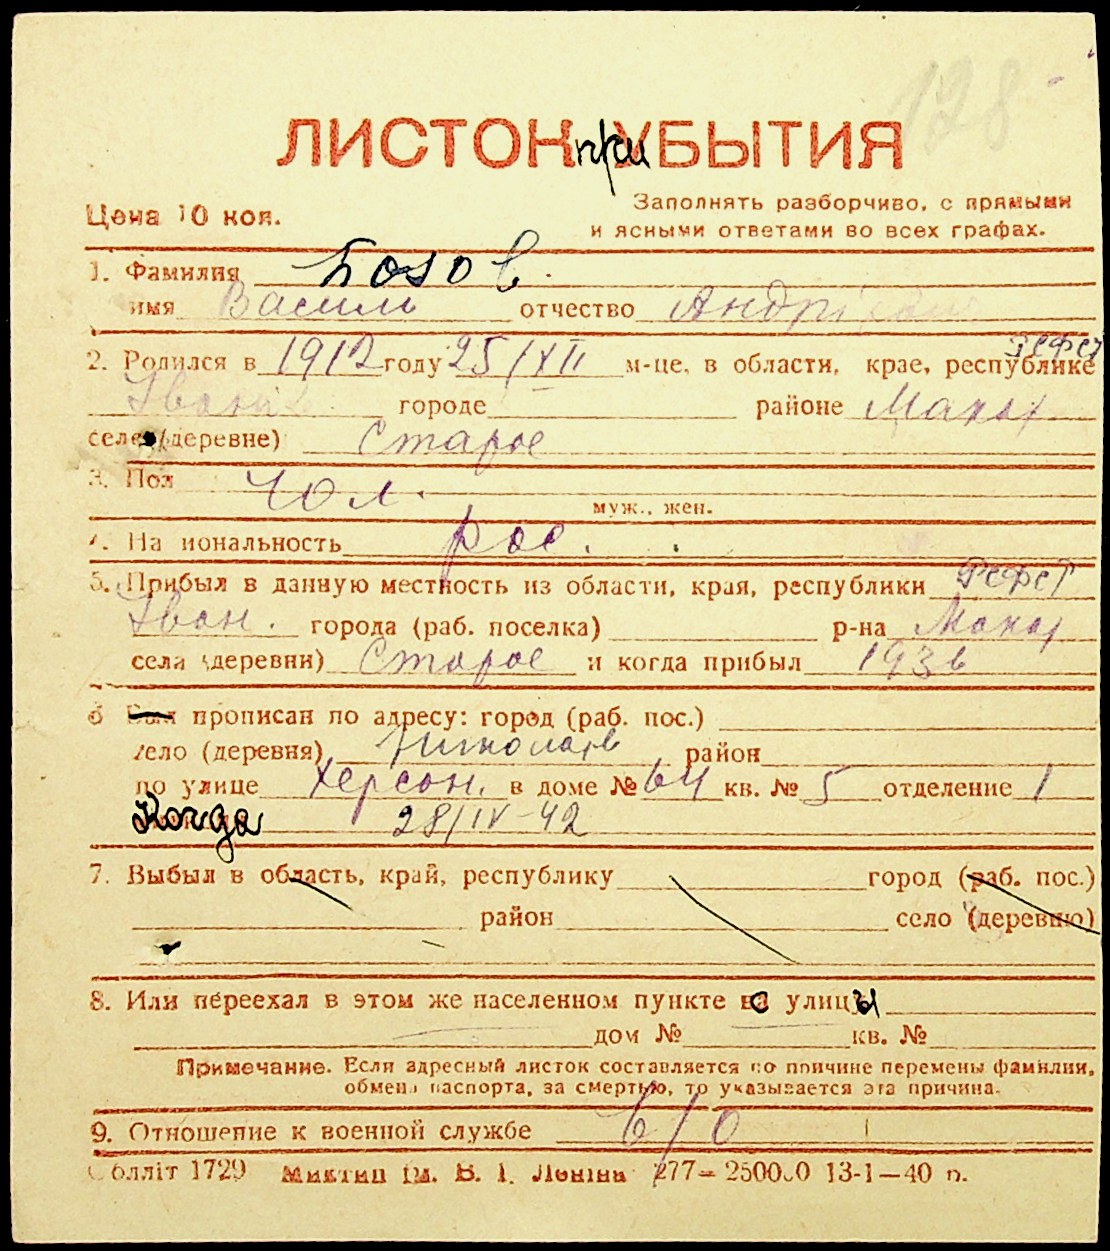 128
ЛИСТОК прибытия
Цена 10 коп.
Заполнять разборчиво, с прямыми
и ясными ответами во всех графах.
1. Фамилия Бозов.
имя Василь отчество
2. Родился в 1912 году 25/XII м-це, в области, крае, республике РСФСР
Іван городе районе Макар
селе (деревне) Старое
3. Пол чол.
муж., жен.
4. Национальность рос.
5. Прибыл в данную местность из области, края, республики РСФСР
Іван. города (раб. поселка) р-на Макар
села (деревни) Старое и когда прибыл 1936
6 Был прописан по адресу: город (раб. пос.)
село (деревня) Николаев район
по улице Херсон. в доме № 64 кв. № 5 отделение 1
Когда 28/IV-42
7. Выбыл в область, край, республику город (раб. пос.)
район село (деревню)
8. Или переехал в этом же населенном пункте с улицы
дом № кв. №
Примечание. Если адресный листок составляется по причине перемены фамилии,
обмена паспорта, за смертью, то указывается эта причина.
9. Отношение к военной службе в/о
Облліт 1729 Миктип ім. В. І. Леніна 277—250000 13-1—40 п.